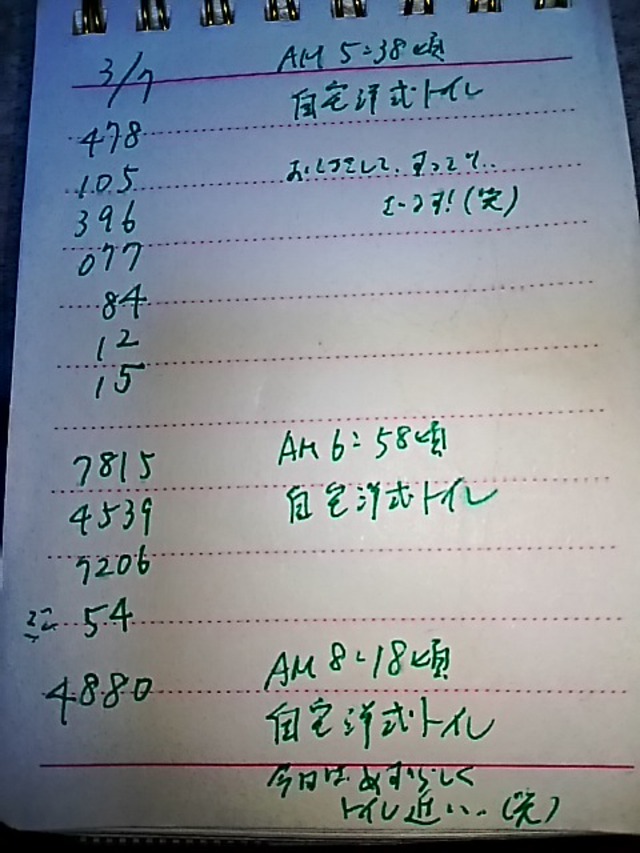 3/7 AM 5:38頃
自宅洋式トイレ
478
105
396
(笑)
077
84
12
15
7815 AM 6:58頃
4539 自宅洋式トイレ
7206
ミニ 54
4880 AM 8:18頃
自宅洋式トイレ
今日はめずらしく
トイレ近い..(笑)